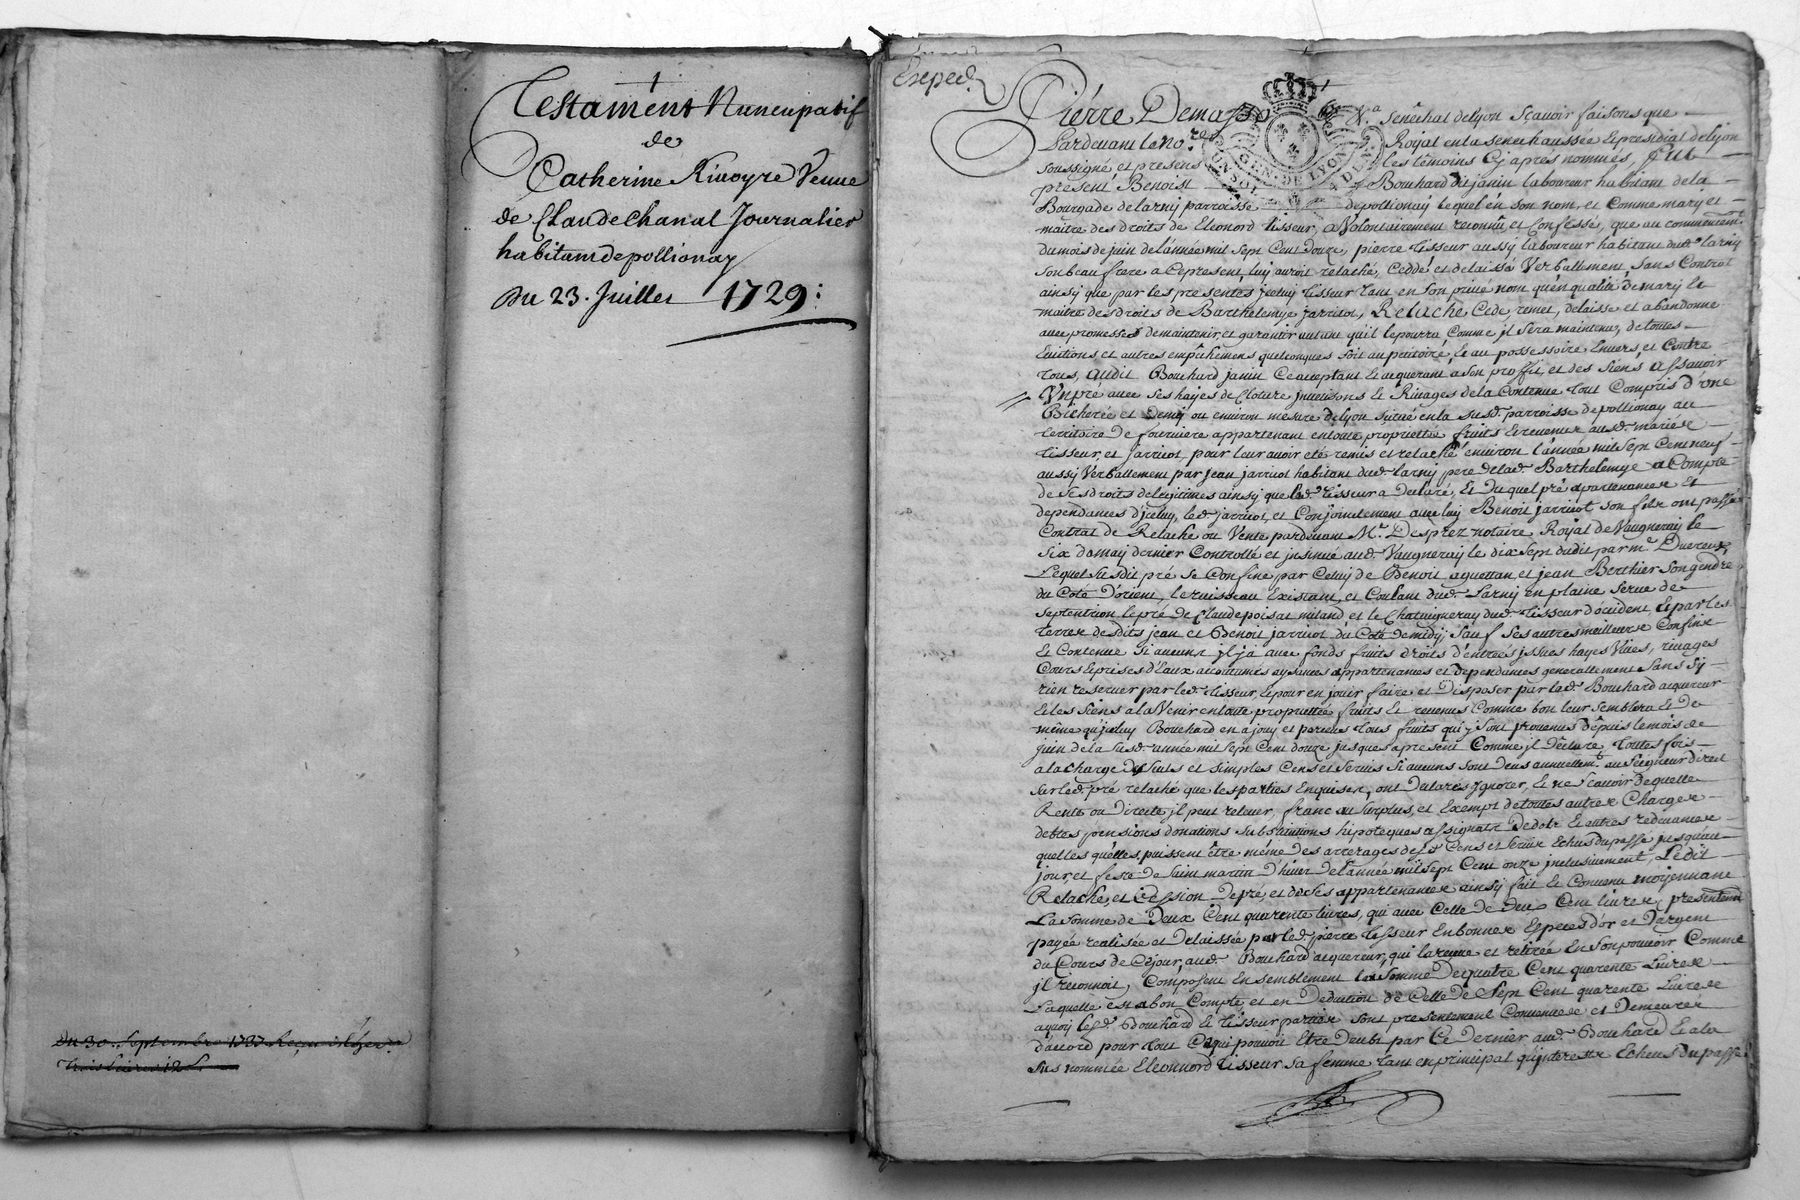 Testament Nuncupatif
de
Catherine Rivoyre Veuve
de Claude Chanal Journalier
habitant de pollionay
Du 23. Juillet 1729:
Du 30. Septembre 1737 Reçu
Trois livres 12 s.
Exped.
Pierre Demasso senéchal de lyon Sçavoir faisons que
Pardevant le no.re Royal en la senechaussée & presidial de lyon
soussigné et presens les témoins Cy aprés nommés, fut
présent Benoist Bouchard dit janin laboureur habitant de la
Bourgade de larny parroisse de pollionay lequel en son nom, et Comme mary et
maitre des droits de Eleonord tisseur, a Volontairement reconnû et Confessé, que au commencem.t
du mois de juin de l'année mil sept Cent douze, pierre tisseur aussy laboureur habitant dud. larny
son beau frere a Ce present, luy auroit relaché, Ceddé et delaissé Verballement, sans Contrat
ainsy que par les presentes jceluy tisseur tant en son privé nom qu'en qualité de mary &
maitre des droits de Barthelemye jarricot, Relache, Cede, remet, delaisse et abandonne
avec promesses de maintenir, et garantir autant qu'il le pourra Comme jl sera maintenu, de toutes
Evictions et autres empêchemens quelconques soit au petitoire, & au possessoire Envers, et Contre
tous, audit Bouchard janin Ce acceptant & acquerant a son proffit, et des siens assavoir
Un pré avec ses hayes de Cloture & Rivages de la Contenue tout Compris d'une
Bicherée et demy ou environ mesure de lyon situé en la susd. parroisse de pollionay au
territoire de fourniere appartenant en toute proprietté fruits & revenus ausd. mariés
tisseur, et jarricot pour leur avoir eté remis et relaché environ l'année mil sept Cent neuf
aussy Verballement par jean jarricot habitant dud. larny pere de lad. Barthelemye a Compte
de ses droits de legitimes ainsy que led. tisseur a declaré, & duquel pré apartenances et
dependances d'jceluy, led. jarricot, et Conjoinctement avec luy Benoit jarricot son fils ont passé
Contrat de Relache ou Vente pardevant M.r Desprez notaire Royal de Vaugneray le
six de may dernier Controllé et jnsinué aud. Vaugneray le dix sept dudit par m.e
Lequel susdit pré se Confine par Celuy de Benoit aguettan, et jean Berthier son gendre
du Coté d'orient, le ruisseau Existant, et Coulant dud. Larny en plaine serve de
septentrion le pré de Claude poisat miland et le Chataigneray dud. tisseur d'occident & par les
terres desdits jean et Benoit jarricot du Coté de midy, sauf ses autres meilleurs Confins
Et Contenue si aucuns jl y a avec fonds fruits droits d'entrées jssues hayes Vives, rivages
Cours & prises d'Eaux accoutumés aysances appartenances et dependances generallement sans sy
rien reserver par led. tisseur, & pour en jouir faire et disposer par led. Bouchard acquereur
& les siens a la Venir en toute proprietté fruits & revenus Comme bon leur semblera & de
même qu'jceluy Bouchard en a jouy et perceus tous fruits qui y sont provenus dêpuis le mois de
juin de la susd. année mil sept Cent douze jusques a present Comme jl déclare, toutes fois
a la charge des seuls et simples Cens et servis si aucuns sont deus annuellem.t au Seigneur direct
sur led. pré relaché que les parties Enquises, ont déclarés ignorer, & ne sçavoir de quelle
Rente ou Directe jl peut relever, franc au surplus, et Exempt de toutes autres Charges
debtes pensions donations substitutions hipoteques assignats de dotz & autres redevances
quelles qu'elles puissent être même des arrerages desd. Cens et servis Echus du passé jusqu'au
jour et feste de saint martin d'hiver de l'année mil sept Cent onze jnclusivement, Ledit
Relache, et Cession de pré, et de ses appartenances ainsy fait & Convenu moyennant
La somme de Deux Cent quarente livres, qui avec Celle de deux Cent livres, presentem.t
payée realisée et delaissée par led. pierre tisseur En bonnes Especes d'or et d'argent
du Cours de Ce jour, aud. Bouchard acquereur, qui l'a reçue et retirée En son pouvoir Comme
jl reconnoit, Composent Ensemblement la somme de quatre Cent quarente Livres
Laquelle est a bon Compte et en deduction de Celle de sept Cent quarente Livres
a quoy lesd. Bouchard & tisseur parties sont presentement Convenues et demeurés
d'accord pour tout Ce qui pouvoit Etre deub par Ce Dernier aud. Bouchard & a la
sus nommée Eleonnord tisseur sa femme tant en principal qu'jnterests Echeus du passé